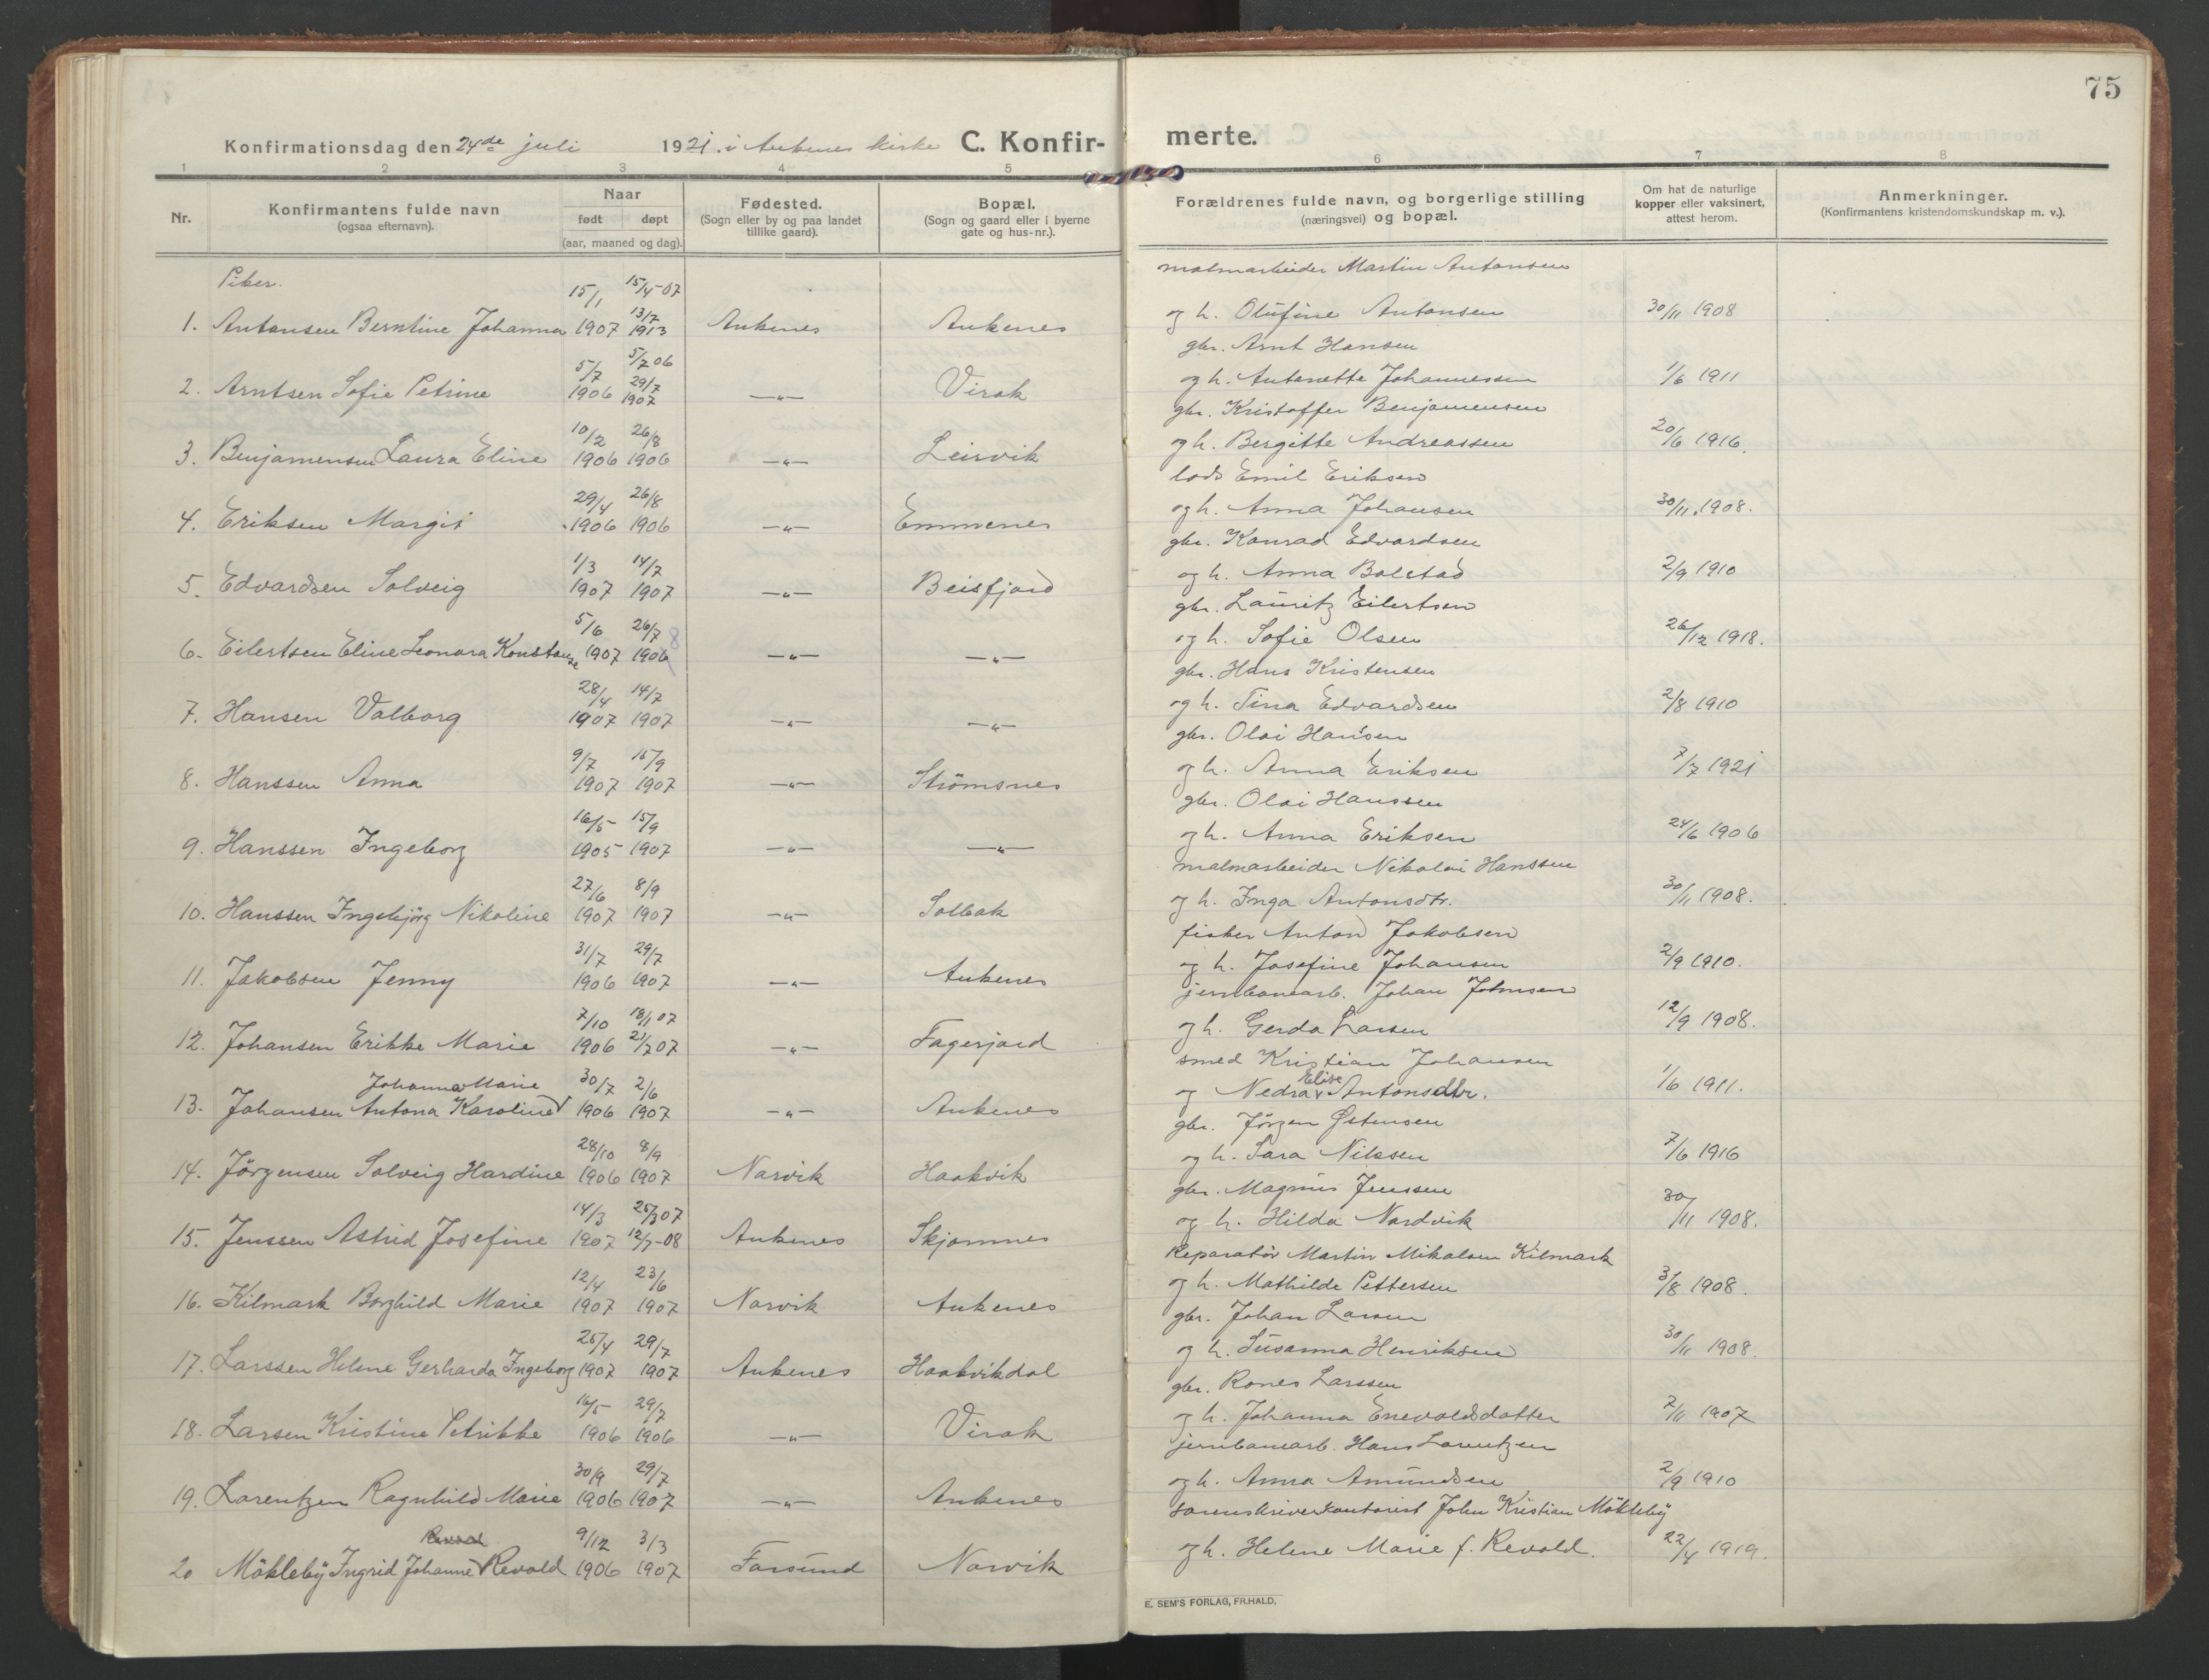 75
Konfirmationsdag den 24de juli 1921. i Ankenes kirke C. Konfirmerte.
1 2 3 4 5 6 7 8
Nr. Konfirmantens fulde navn (ogsaa efternavn). Naar født døpt (aar, maaned og dag). Fødested. (Sogn eller by og paa landet tillike gaard). Bopæl. (Sogn og gaard eller i byerne gate og hus-nr.). Forældrenes fulde navn, og borgerlige stilling (næringsvei) og bopæl. Om hat de naturlige kopper eller vaksinert, attest herom. Anmerkninger. (Konfirmantens kristendomskundskap m. v.).
Piker. 15/1 15/4-07 malmarbeider Martin Antonsen
1. Antonsen Berntine Johanna 1907 13/7 1913 Ankenes Ankenes og h. Olufine Antonsen 30/11 1908
5/7 5/7 06 gbr. Arnt Hansen
2. Arntsen Sofie Petrine 1906 29/7 1907 —"— Virak og h. Antonette Johannessen 1/6 1911
10/2 26/8 gbr. Kristoffer Benjamensen
3. Benjamensen Laura Eline 1906 1906 —"— Leirvik og h. Bergitte Andreassen 20/6 1916.
29/4 26/8 lods Emil Eriksen
4. Eriksen Margit 1906 1906 —"— Emmenes og h. Anna Johansen 30/11 1908.
1/3 14/7 gbr. Konrad Edvardsen
5. Edvardsen Solveig 1907 1907 —"— Beisfjord og h. Anna Bolstad 2/9 1910
5/6 26/7 8 gbr. Lauritz Eilertsen
6. Eilertsen Eline Leonora Konstanse 1907 1906 —"— —"— og h. Sofie Olsen 26/12 1918.
28/4 14/7 gbr. Hans Kristensen
7. Hansen Valborg 1907 1907 —"— —"— og h. Tina Edvardsen 2/8 1910
9/7 15/9 gbr. Olai Hansen
8. Hanssen Anna 1907 1907 —"— Strömsnes og h. Anna Eriksen 7/7 1921
16/5 15/9 gbr. Olai Hanssen
9. Hanssen Ingeborg 1905 1907 —"— —"— og h. Anna Eriksen 24/6 1906
27/6 8/9 malmarbeider Nikolai Hanssen
10. Hanssen Ingebjörg Nikoline 1907 1907 —"— Solbak og h. Inga Antonsdtr. 30/11 1908.
31/7 29/7 fisker Anton Jakobsen
11. Jakobsen Jenny 1906 1907 —"— Ankenes og h. Josefine Johansen 2/9 1910.
7/10 18/1 07 jernbanearb. Johan Johnsen
12. Johansen Erikke Marie 1906 21/7 07 —"— Fagerjord og h. Gerda Larsen 12/9 1908.
Johanna Marie 30/7 2/6 smed Kristian Johansen
13. Johansen Antona Karoline 1906 1907 —"— Ankenes og Nedra Elise Antonsdtr. 1/6 1911.
28/10 8/9 gbr. Jörgen Østensen
14. Jörgensen Solveig Hardine 1906 1907 Narvik Haakvik og h. Sara Nilssen 7/6 1916
14/3 25/3 07 gbr. Magnus Jenssen
15. Jenssen Astrid Josefine 1907 12/7-08 Ankenes Skjomnes og h. Hilda Nordvik 30/11 1908.
12/4 23/6 Reparatör Martin Mikalsen Kilmark
16. Kilmark Borghild Marie 1907 1907 Narvik Ankenes og h. Mathilde Pettersen 3/8 1908.
25/4 29/7 gbr. Johan Larsen
17. Larssen Helene Gerharda Ingeborg 1907 1907 Ankenes Haakvikdal og h. Susanna Henriksen 30/11 1908.
16/5 29/7 gbr. Rones Larssen
18. Larsen Kristine Petrikke 1906 1906 —"— Virak og h. Johanna Enevoldsdatter 7/11 1907
30/9 29/7 jernbanearb. Hans Lorentzen
19. Lorentzen Ragnhild Marie 1906 1907 —"— Ankenes og h. Anna Amundsen 2/9 1910
9/12 3/3 sorenskriverkontorist John Kristian Mökleby
20 Mökleby Ingrid Johanne Revold 1906 1907 Farsund Narvik og h. Helene Marie f. Revold. 22/4 1919.
E. SEM'S FORLAG, FR.HALD.